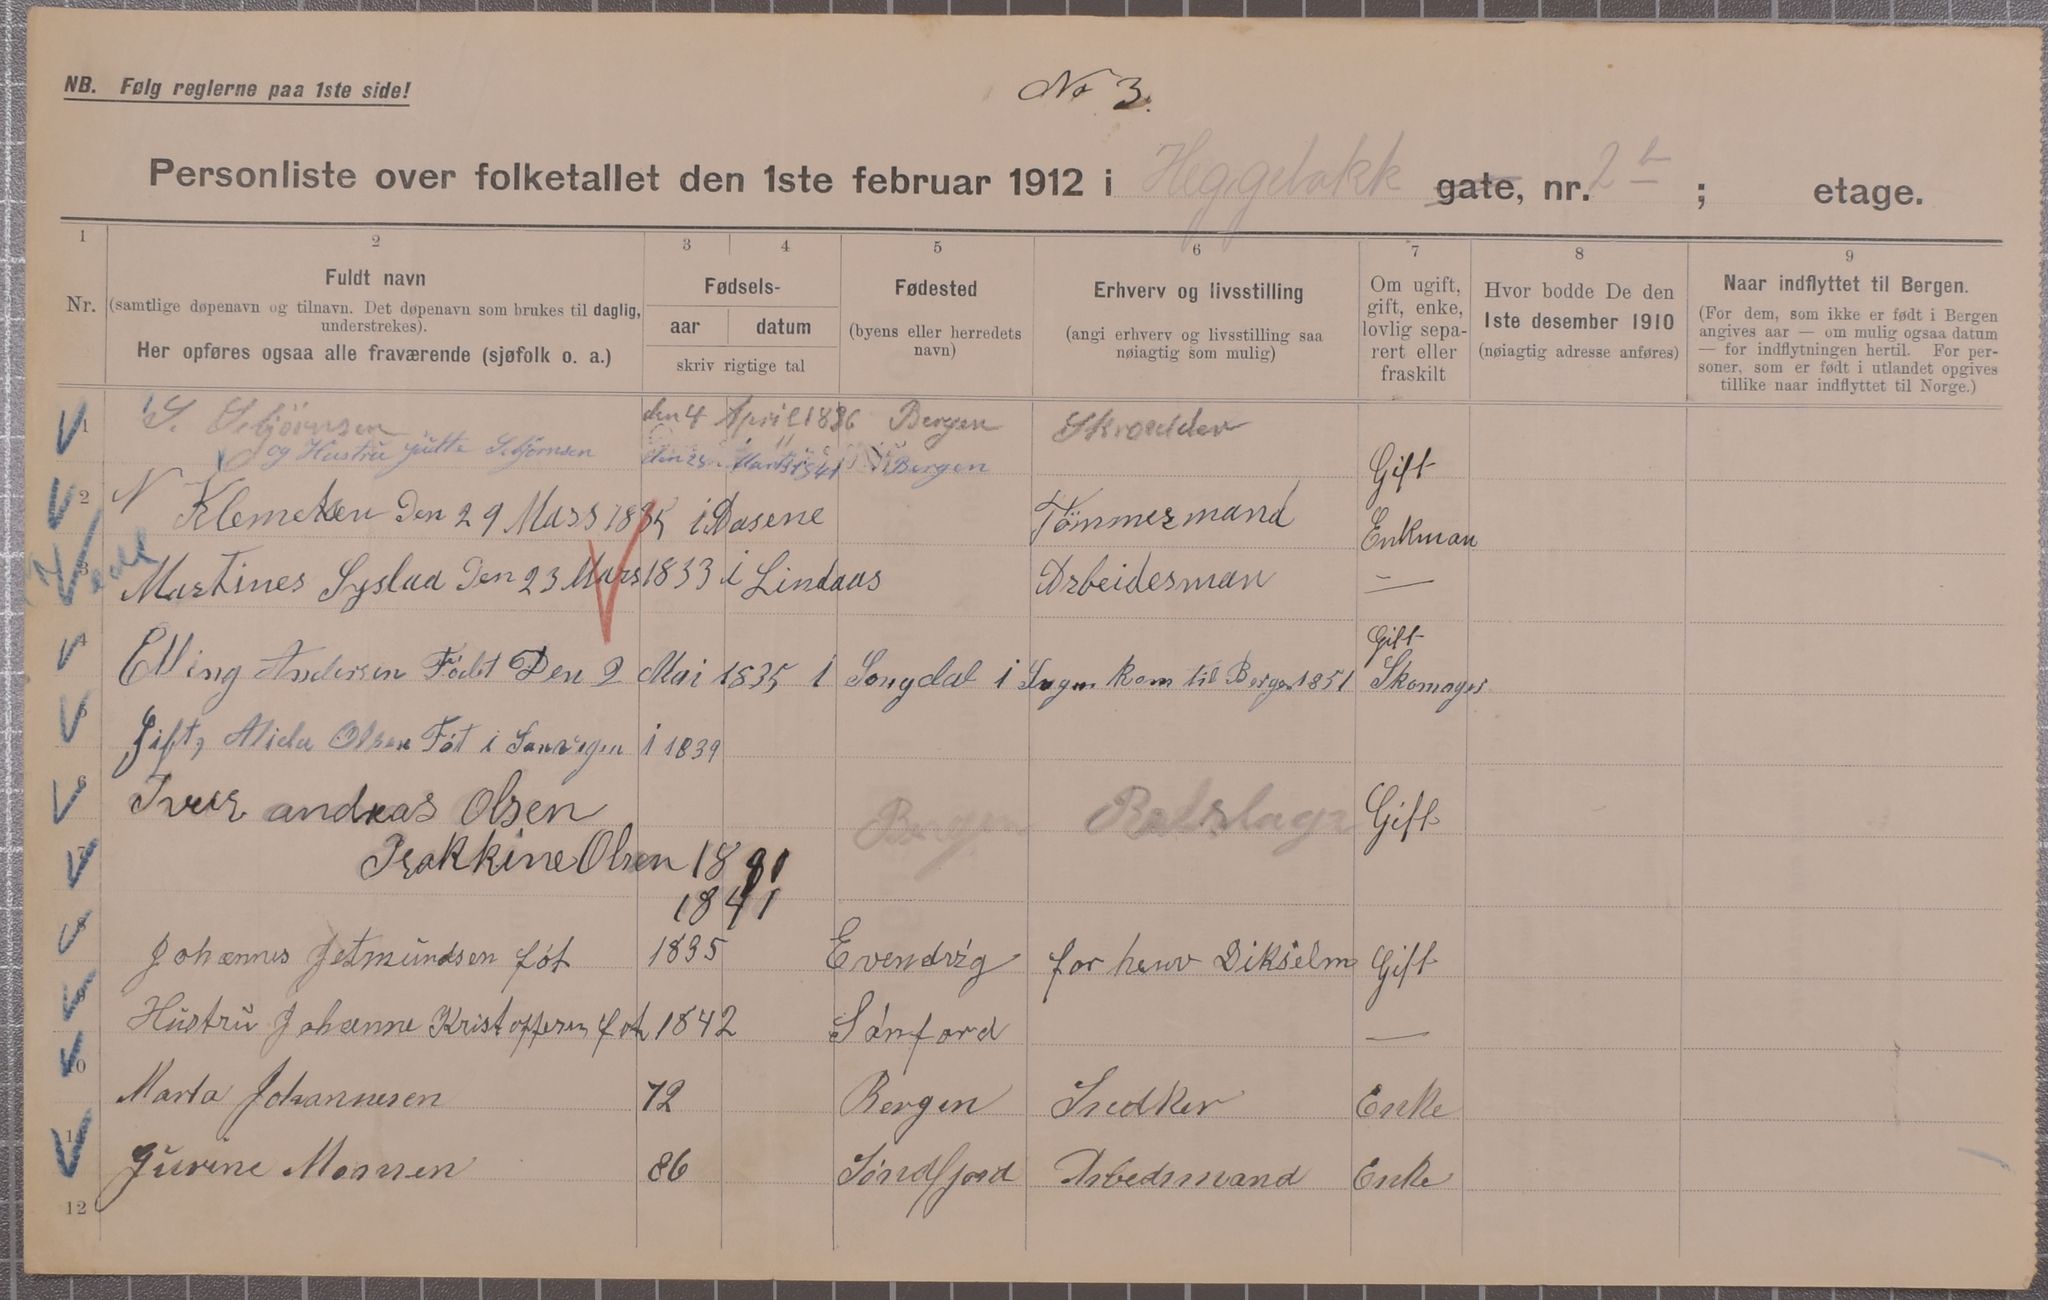 NB. Følg reglerne paa 1ste side!
No 3.
Personliste over folketallet den 1ste februar 1912 i Heggebakk gate, nr. 2 b ; etage.
1 2 3 4 5 6 7 8 9
Nr.
Fuldt navn
(samtlige døpenavn og tilnavn. Det døpenavn som brukes til daglig, understrekes).
Her opføres ogsaa alle fraværende (sjøfolk o. a.)
Fødsels-
aar datum
skriv rigtige tal
Fødested
(byens eller herredets navn)
Erhverv og livsstilling
(angi erhverv og livsstilling saa nøiagtig som mulig)
Om ugift, gift, enke, lovlig sepa-
rert eller fraskilt
Hvor bodde De den
1ste desember 1910
(nøiagtig adresse anføres)
Naar indflyttet til Bergen.
(For dem, som ikke er født i Bergen
angives aar — om mulig ogsaa datum
— for indflytningen hertil. For per-
soner, som er født i utlandet opgives
tillike naar indflyttet til Norge.)
1 S. Sebjörnsen den 4 April 1836 Bergen Skrædder
og Hustru Jutte Sebjörnsen Bergen Gift
2 N Klemetsen Den 29 Mars 1835 i Tömmermand Enkman
3 Martines Syslaa Den 23 Mars 1833 i Lindaas Arbeidesman —
4 Elling Andersen Födt Den 2 Mai 1835 i Songdal i Sogn kom til Bergen 1851 Gift Skomager
5 Gift, Alida Olsen Föt i i 1839
6 Iver andreas Olsen Bergen Gift
7 Olsen 1881
1841
8 Johannes Jetmundsen föt 1835 Evendvig for herv Gift
9 Hustru Johanne Kristoffersen föt 1842 Sönford —
10 Marta Johannesen 72 Bergen Snedker Enke
11 Jurine Monsen 86 Söndfjord Arbedsmand Enke
12